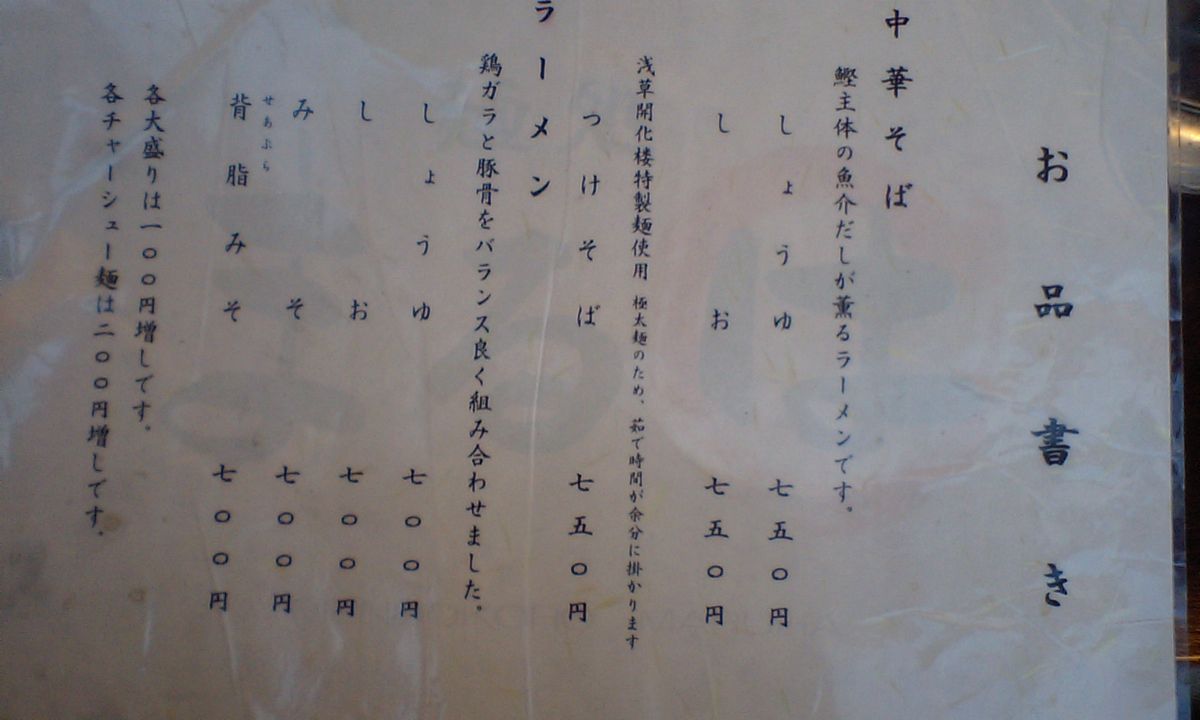 お品書き
中華そば
鰹主体の魚介だしが薫るラーメンです。
しょうゆ 七五〇円
しお 七五〇円
浅草開化楼特製麺使用 極太麺のため、茹で時間が余分に掛かります
つけそば 七五〇円
ラーメン
鶏ガラと豚骨をバランス良く組み合わせました。
しょうゆ 七〇〇円
しお 七〇〇円
みそ 七〇〇円
せあぶら
背脂みそ 七〇〇円
各大盛りは一〇〇円増しです。
各チャーシュー麺は二〇〇円増しです。